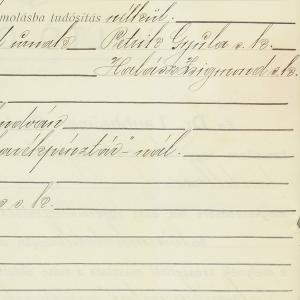 molásba tudósítás nélkül.
urnak Petrik Gyula s. k.
Halász Zsigmond s. k.
udvar
takarékpénztár"-nál.
s. k.